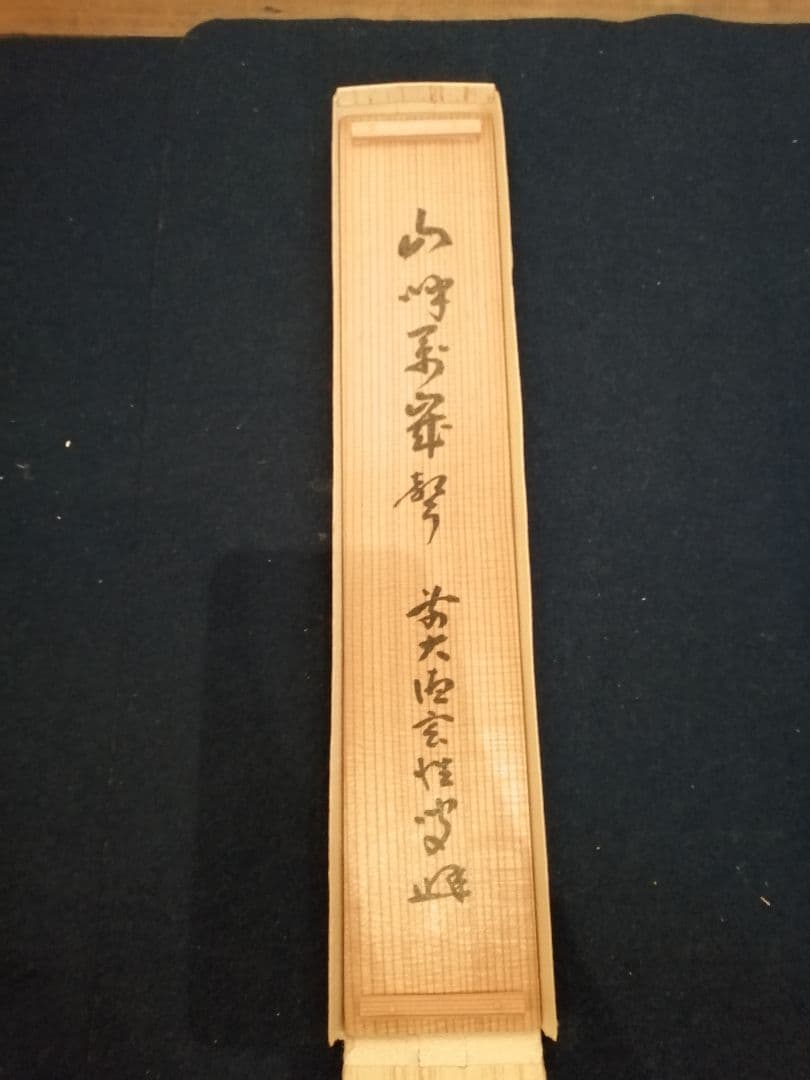 山呼萬歳聲 前大徳玄性叟